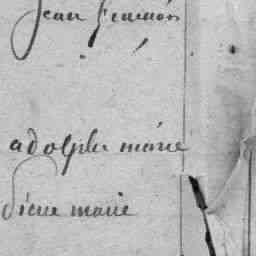 Jean françois
adolphe marie
pierre marie